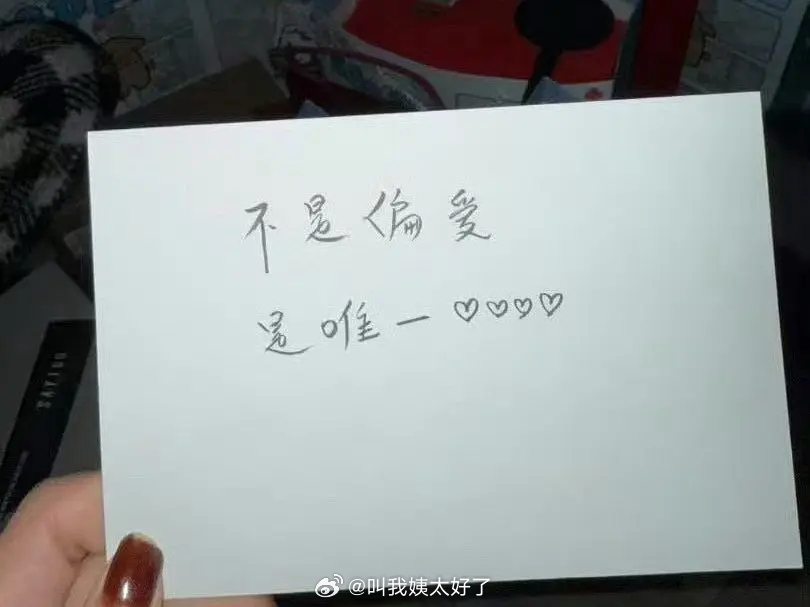 不是偏爱
是唯一♡♡♡♡
SAYIDO
@叫我姨太好了